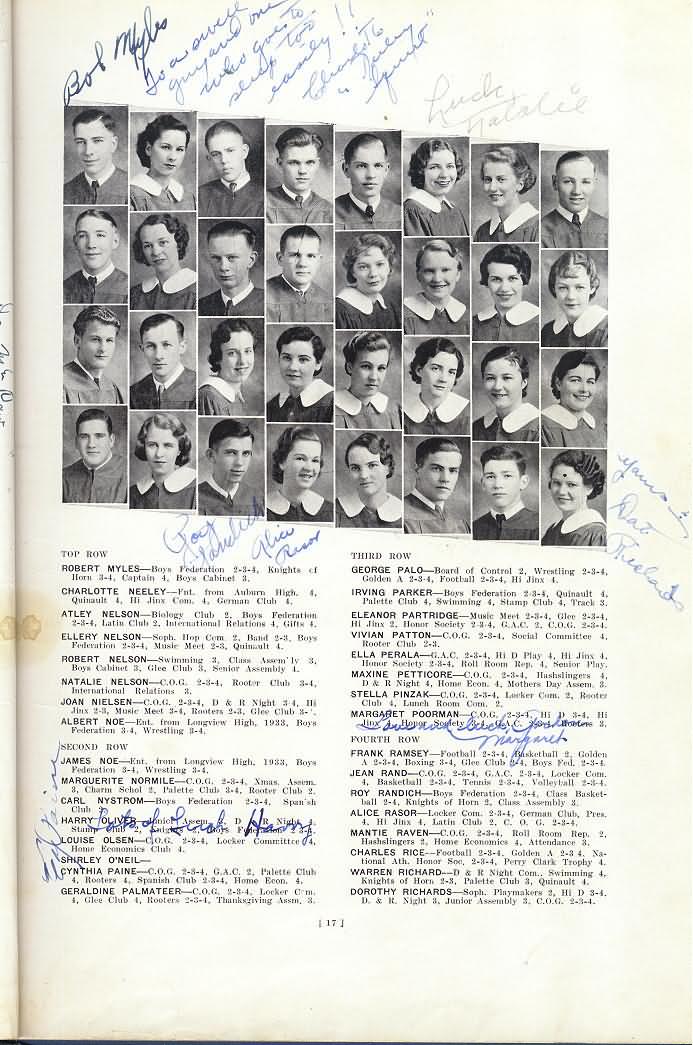 Bob Myles
To a swell
guy and one
who goes to
sleep too
easily!!
Luck
Natalie
Roy
Randich
Alice
Rasor
Yours
Dot
Richards
TOP ROW
ROBERT MYLES—Boys Federation 2-3-4, Knights of
Horn 3-4, Captain 4, Boys Cabinet 3.
CHARLOTTE NEELEY—Ent. from Auburn High. 4,
Quinault 4, Hi Jinx Com. 4, German Club 4.
ATLEY NELSON—Biology Club 2, Boys Federation
2-3-4, Latin Club 2, International Relations 4, Gifts 4.
ELLERY NELSON—Soph. Hop Com. 2, Band 2-3, Boys
Federation 2-3-4, Music Meet 2-3, Quinault 4.
ROBERT NELSON—Swimming 3, Class Assem'ly 3,
Boys Cabinet 3, Glee Club 3, Senior Assembly 4.
NATALIE NELSON—C.O.G. 2-3-4, Rooter Club 3-4,
International Relations 3.
JOAN NIELSEN—C.O.G. 2-3-4, D & R Night 3-4, Hi
Jinx 2-3, Music Meet 3-4, Rooters 2-3, Glee Club 3-4.
ALBERT NOE—Ent. from Longview High, 1933, Boys
Federation 3-4, Wrestling 3-4.
SECOND ROW
JAMES NOE—Ent. from Longview High, 1933, Boys
Federation 3-4, Wrestling 3-4.
MARGUERITE NORMILE—C.O.G. 2-3-4, Xmas. Assem.
3, Charm Schol 2, Palette Club 3-4, Rooter Club 2.
CARL NYSTROM—Boys Federation 2-3-4, Spanish
Club
HARRY OLIVER—Senior Assem. 4, D & R Night 4,
Stamp Club 2, Knights Boys Federation 2-3-4.
Lots of Luck Harry
LOUISE OLSEN—C.O.G. 2-3-4, Locker Committee 4,
Home Economics Club 4.
SHIRLEY O'NEIL—
CYNTHIA PAINE—C.O.G. 2-3-4, G.A.C. 2, Palette Club
4, Rooters 4, Spanish Club 2-3-4, Home Econ. 4.
GERALDINE PALMATEER—C.O.G. 2-3-4, Locker Com.
4, Glee Club 4, Rooters 2-3-4, Thanksgiving Assm. 3.
THIRD ROW
GEORGE PALO—Board of Control 2, Wrestling 2-3-4,
Golden A 2-3-4, Football 2-3-4, Hi Jinx 4.
IRVING PARKER—Boys Federation 2-3-4, Quinault 4,
Palette Club 4, Swimming 4, Stamp Club 4, Track 3.
ELEANOR PARTRIDGE—Music Meet 2-3-4, Glee 2-3-4,
Hi Jinx 2, Honor Society 2-3-4, G.A.C. 2, C.O.G. 2-3-4.
VIVIAN PATTON—C.O.G. 2-3-4, Social Committee 4,
Rooter Club 2-3.
ELLA PERALA—G.A.C. 2-3-4, Hi D Play 4, Hi Jinx 4,
Honor Society 2-3-4, Roll Room Rep. 4, Senior Play.
MAXINE PETTICORE—C.O.G. 2-3-4, Hashslingers 4,
D & R Night 4, Home Econ. 4, Mothers Day Assem. 3.
STELLA PINZAK—C.O.G. 2-3-4, Locker Com. 2, Rooter
Club 4, Lunch Room Com. 2.
MARGARET POORMAN—C.O.G. 2-3-4, Hi D 3-4, Hi
Jinx 4, Honor Society 3-4, G.A.C. 2-3-4, Rooters 3.
Margaret
FOURTH ROW
FRANK RAMSEY—Football 2-3-4, Basketball 2, Golden
A 2-3-4, Boxing 3-4, Glee Club 2-4, Boys Fed. 2-3-4.
JEAN RAND—C.O.G. 2-3-4, G.A.C. 2-3-4, Locker Com.
4, Basketball 2-3-4, Tennis 2-3-4, Volleyball 2-3-4.
ROY RANDICH—Boys Federation 2-3-4, Class Basket-
ball 2-4, Knights of Horn 2, Class Assembly 3.
ALICE RASOR—Locker Com. 2-3-4, German Club, Pres.
4, Hi Jinx 4, Latin Club 2, C. O. G. 2-3-4.
MANTIE RAVEN—C.O.G. 2-3-4, Roll Room Rep. 2,
Hashslingers 2, Home Economics 4, Attendance 3.
CHARLES RICE—Football 2-3-4, Golden A 2-3-4, Na-
tional Ath. Honor Soc. 2-3-4, Perry Clark Trophy 4.
WARREN RICHARD—D & R Night Com., Swimming 4,
Knights of Horn 2-3, Palette Club 3, Quinault 4.
DOROTHY RICHARDS—Soph. Playmakers 2, Hi D 3-4,
D. & R. Night 3, Junior Assembly 3, C.O.G. 2-3-4.
[ 17 ]